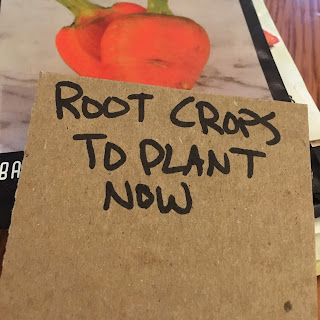 ROOT CROPS
TO PLANT
NOW
BA